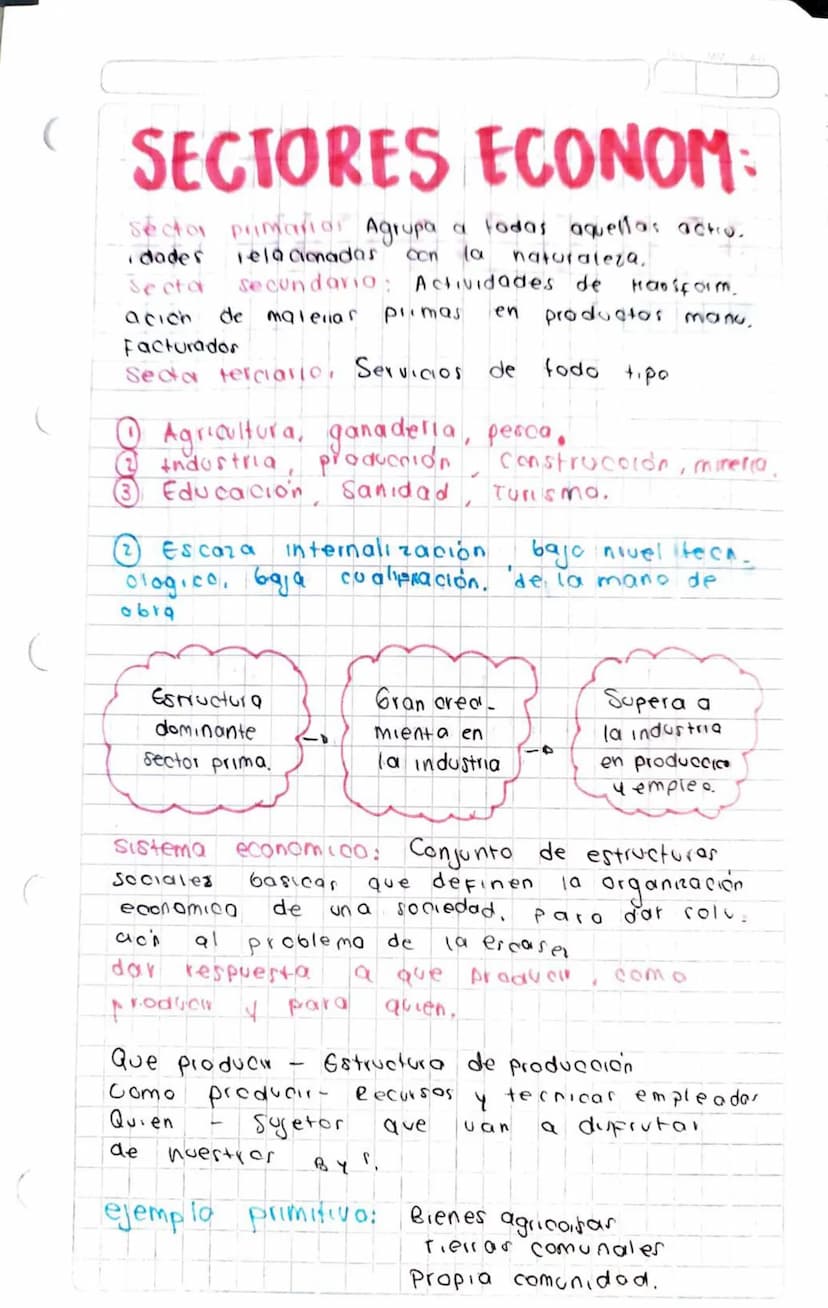 SECTORES ECONOM:
Sector primario: Agrupa a todas aquellas activ.
idades relacionadas con la naturaleza.
Secto secundario: Actividades de transform.
ación de materias primas en productos manu.
facturados
Sector terciario. Servicios de todo tipo
① Agricultura, ganaderia, pesca.
② industria, producción, construcción, mineria.
③ Educación, Sanidad, Turismo.
② Escaza internalización bajo nivel tecn-
ologico, baja de la mano de
obra
Estructura
dominante
sector prima.
→
Gran creci-
mienta en
la industria
→
Supera a
la industria
en produccio
y empleo.
Sistema economico: Conjunto de estructuras
sociales basicas que definen la organización
economica de una sociedad. para dar solu-
ción al problema de la escasez
dar respuesta a que producir, como
producir y para quien.
Que producir - Estructura de producción
Como producir - Recursos y tecnicas empleadas
Quien - Sujetos que van a disfrutar
de nuestros B y S.
ejemplo primitivo: Bienes agricolas
Tierras comunales
Propia comunidad.